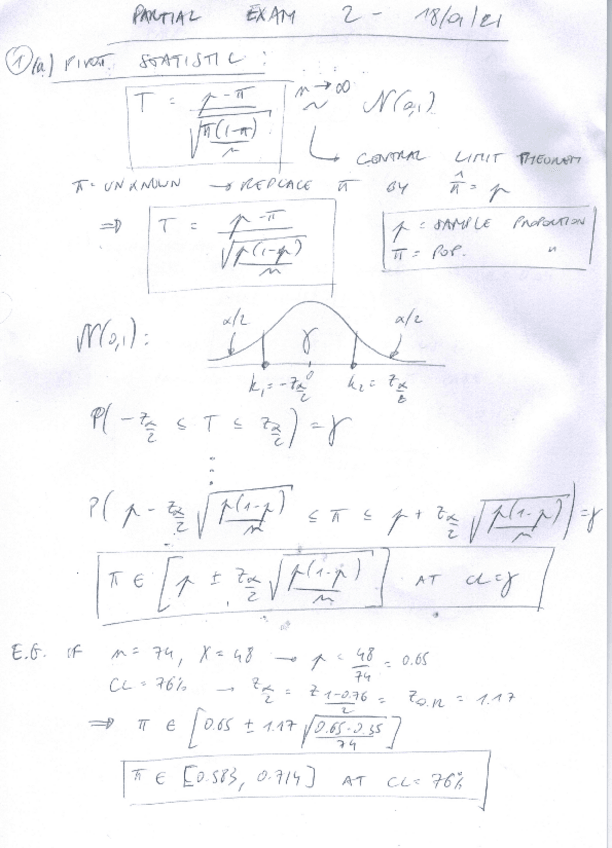 PARTIAL EXAM 2 - 18/01/21
① (a) PIVOT. STATISTIC:
T = (p - π) / √(π(1-π)/n) n→∞ ~ N(0,1)
↳ CENTRAL LIMIT THEOREM
π = UNKNOWN → REPLACE π BY π̂ = p
⇒ T = (p - π) / √(p(1-p)/n)
p = SAMPLE PROPORTION
π = POP. "
N(0,1): α/2 γ α/2
k₁ = -z_{α/2} 0 k₂ = z_{α/2}
P(-z_{α/2} ≤ T ≤ z_{α/2}) = γ
⋮
P(p - z_{α/2} √(p(1-p)/n) ≤ π ≤ p + z_{α/2} √(p(1-p)/n)) = γ
π ∈ [p ± z_{α/2} √(p(1-p)/n)] AT CL=γ
E.G. IF n = 74, X = 48 → p = 48/74 = 0.65
CL = 76% → z_{α/2} = z_{(1-0.76)/2} = z_{0.12} = 1.17
⇒ π ∈ [0.65 ± 1.17 √(0.65·0.35/74)]
π ∈ [0.583, 0.714] AT CL= 76%